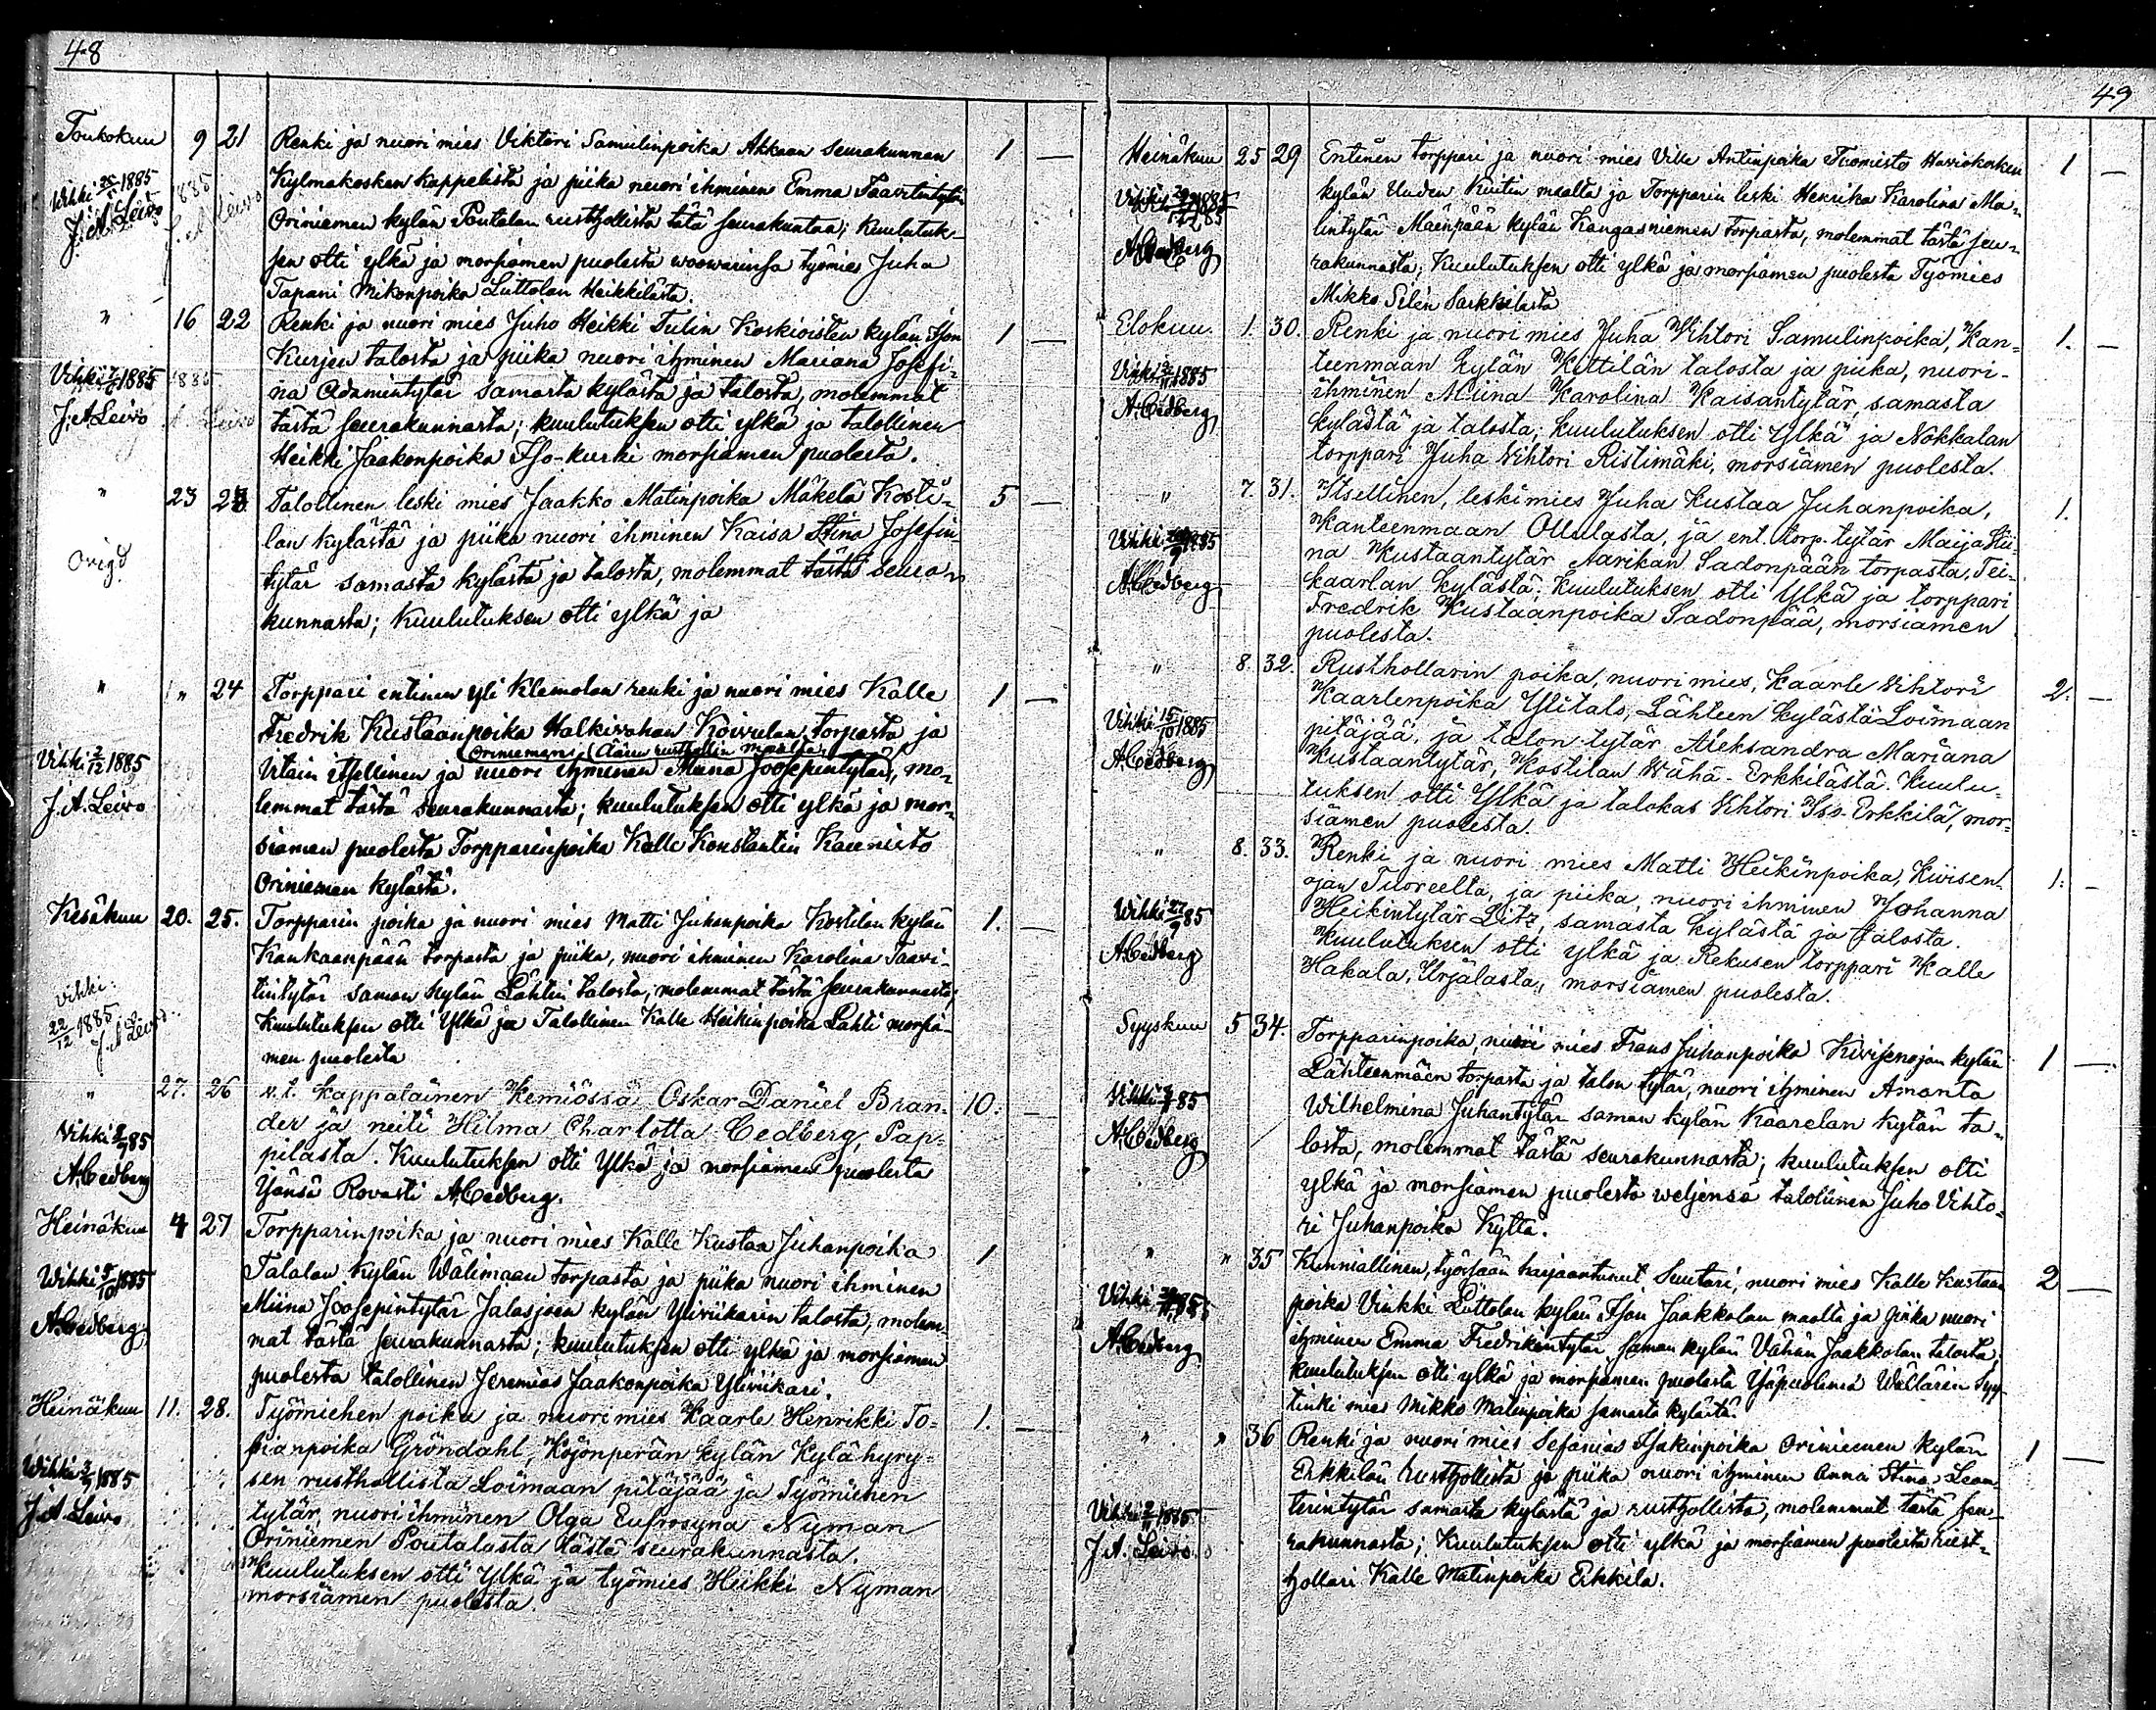 48
Toukokuu 9 21 Renki ja nuori mies Viktori Samulinpoika Akkaan seurakunnan 1 —
Kylmäkosken kappelista ja piika nuori ihminen Emma Taavetintytär
Vihki 1885
J. A. Leivo
Oriniemen kylän Poutalan rusthollista tätä seurakuntaa; Kuulutuk-
sen otti ylkä ja morsiamen puolesta woowarinsa työmies Juha
Tapani Mikonpoika Liittolan Heikkilästä.
" 16 22 Renki ja nuori mies Juho Heikki Tulin Koskioisten kylän Ison 1 —
Kurjen talosta ja piika nuori ihminen Mariana Josefi-
Vihki 1885
na Adamintytär samasta kylästä ja talosta, molemmat
J. A. Leivo
tästä seurakunnasta; kuulutuksen otti ylkä ja talollinen
Heikki Jaakonpoika Iso-kurki morsiamen puolesta.
" 23 23 Talollinen leski mies Jaakko Matinpoika Mäkelä Kosti- 5 —
lan kylästä ja piika nuori ihminen Kaisa Stina Josefin-
Ovigd
tytär samasta kylästä ja talosta, molemmat tästä seura-
kunnasta; Kuulutuksen otti ylkä ja
" " 24 Torppari entinen yli Klemolan renki ja nuori mies Kalle 1 —
Fredrik Kustaanpoika Halkivahan Koivulan torpasta ja
Oriniemen Äären rusthollin maalta
Vihki 2/12 1885
itsellinen ja nuori ihminen Miina Joosepintytär, mo-
J. A. Leivo
lemmat tästä seurakunnasta; kuulutuksen otti ylkä ja mor-
siamen puolesta Torpparinpoika Kalle Konstantin Kaunisto
Oriniemen kylästä.
Kesäkuu 20. 25. Torpparin poika ja nuori mies Matti Juhanpoika Kostilan kylän 1. —
Kankaanpään torpasta ja piika, nuori ihminen Karolina Taavi-
tintytär saman kylän Lähtin talosta, molemmat tästä seurakunnasta;
Vihki: 22/12 1885
J. A. Leivo
Kuulutuksen otti Ylkä ja Talollinen Kalle Heikinpoika Lahti morsia-
men puolesta
" 27. 26 v. t. kappalainen Kemiössä Oskar Daniel Bran- 10. —
der ja neiti Hilma Charlotta Cedberg, Pap-
Vihki 85
A. Cedberg
pilasta. Kuulutuksen otti Ylkä ja morsiamen puolesta
Isänsä Rovasti A. Cedberg.
Heinäkuu 4 27 Torpparinpoika ja nuori mies Kalle Kustaa Juhanpoika 1
Talalan kylän Wälimaan torpasta ja piika nuori ihminen
Wihki 5/10 1885
Miina Joosepintytär Jalasjoen kylän Yliviikarin talosta, molem-
A. Cedberg
mat tästä seurakunnasta; kuulutuksen otti ylkä ja morsiamen
puolesta talollinen Jeremias Jaakonpoika Yliviikari.
Heinäkuu 11. 28. Työmiehen poika ja nuori mies Kaarle Henrikki To- 1. —
bianpoika Gröndahl, Kojonperän kylän Kylähyry-
Wihki 1885
J. A. Leivo
sen rusthollista Loimaan pitäjää ja Työmiehen
tytär, nuori ihminen Olga Eufrosyna Nyman
Oriniemen Poutalasta tästä seurakunnasta.
Kuulutuksen otti Ylkä ja työmies Heikki Nyman
morsiamen puolesta.
49
Heinäkuu 25 29 Entinen torppari ja nuori mies Ville Antinpoika Tuomisto Haviokosken 1 —
kylän Uuden Kuitin maalta ja Torpparin leski Henrika Karolina Ma-
Vihki 1885
A. Cedberg
lintytär Mäenpään kylän Kangasniemen torpasta, molemmat tästä seu-
rakunnasta; Kuulutuksen otti ylkä ja morsiamen puolesta Työmies
Mikko Selin Sarkkilasta
Elokuu. 1. 30. Renki ja nuori mies Juha Vihtori Samulinpoika, Kan- 1. —
teenmaan kylän Kittilän talosta ja piika, nuori-
Vihki 1885
A. Cedberg
ihminen Miina Karolina Kaisantytär, samasta
kylästä ja talosta; kuulutuksen otti Ylkä ja Nokkalan
torppari Juha Vihtori Ristimäki, morsiamen puolesta.
" 7. 31. Itsellinen, leskimies Juha Kustaa Juhanpoika, 1.
Kanteenmaan Ollilasta, ja ent. torp. tytär Maija Stii-
Vihki 85
A. Cedberg
na Kustaantytär Aarikan Sadonpään torpasta, Tei-
kaarlan kylästä; kuulutuksen otti Ylkä ja torppari
Fredrik Kustaanpoika Sadonpää, morsiamen
puolesta.
" 8. 32. Rusthollarin poika, nuori mies, Kaarle Vihtori 2. —
Kaarlenpoika Ylitalo, Lähteen kylästä Loimaan
Vihki 15/10 1885
A. Cedberg
pitäjää, ja talon tytär Aleksandra Mariana
Kustaantytär, Kostilan Wähä-Erkkilästä. Kuulu-
tuksen otti Ylkä ja talokas Vihtori Iso-Erkkilä, mor-
siamen puolesta.
" 8. 33. Renki ja nuori mies Matti Heikinpoika, Kivisen- 1. —
ojan Tuoreelta, ja piika, nuori ihminen Johanna
Wihki 27/9 85
A. Cedberg
Heikintytär Litz, samasta kylästä ja talosta.
Kuulutuksen otti ylkä ja Rekusen torppari Kalle
Hakala, Urjalasta, morsiamen puolesta.
Syyskuu 5 34. Torpparinpoika, nuori mies Frans Juhanpoika Kivisenojan kylän 1 —
Lähteenmäen torpasta ja talon tytär, nuori ihminen Amanta
Vihki 85
A. Cedberg
Wilhelmina Juhantytär saman kylän Kaarelan Kytän ta-
losta, molemmat tästä seurakunnasta; kuulutuksen otti
ylkä ja morsiamen puolesta weljensä talollinen Juho Vihto-
ri Juhanpoika Kyttä.
" " 35 Kunniallinen, työssään harjaantunut Suutari, nuori mies Kalle Kustaan 2 —
poika Vinkki Liittolan kylän Ison Jaakkolan maalta ja piika nuori
Vihki 85
A. Cedberg
ihminen Emma Fredrikintytär saman kylän Vähän Jaakkolan talosta,
kuulutuksen otti ylkä ja morsiamen puolesta Isäpuolensa Wällärin Syy-
tinki mies Mikko Matinpoika samasta kylästä.
" " 36 Renki ja nuori mies Sefanias Isakinpoika Oriniemen kylän 1 —
Erkkilän rusthollista ja piika nuori ihminen Anna Stina Lean-
Vihki 1885
J. A. Leivo
terintytär samasta kylästä ja rusthollista, molemmat tästä seu-
rakunnasta; Kuulutuksen otti ylkä ja morsiamen puolesta rust-
hollari Kalle Matinpoika Erkkilä.